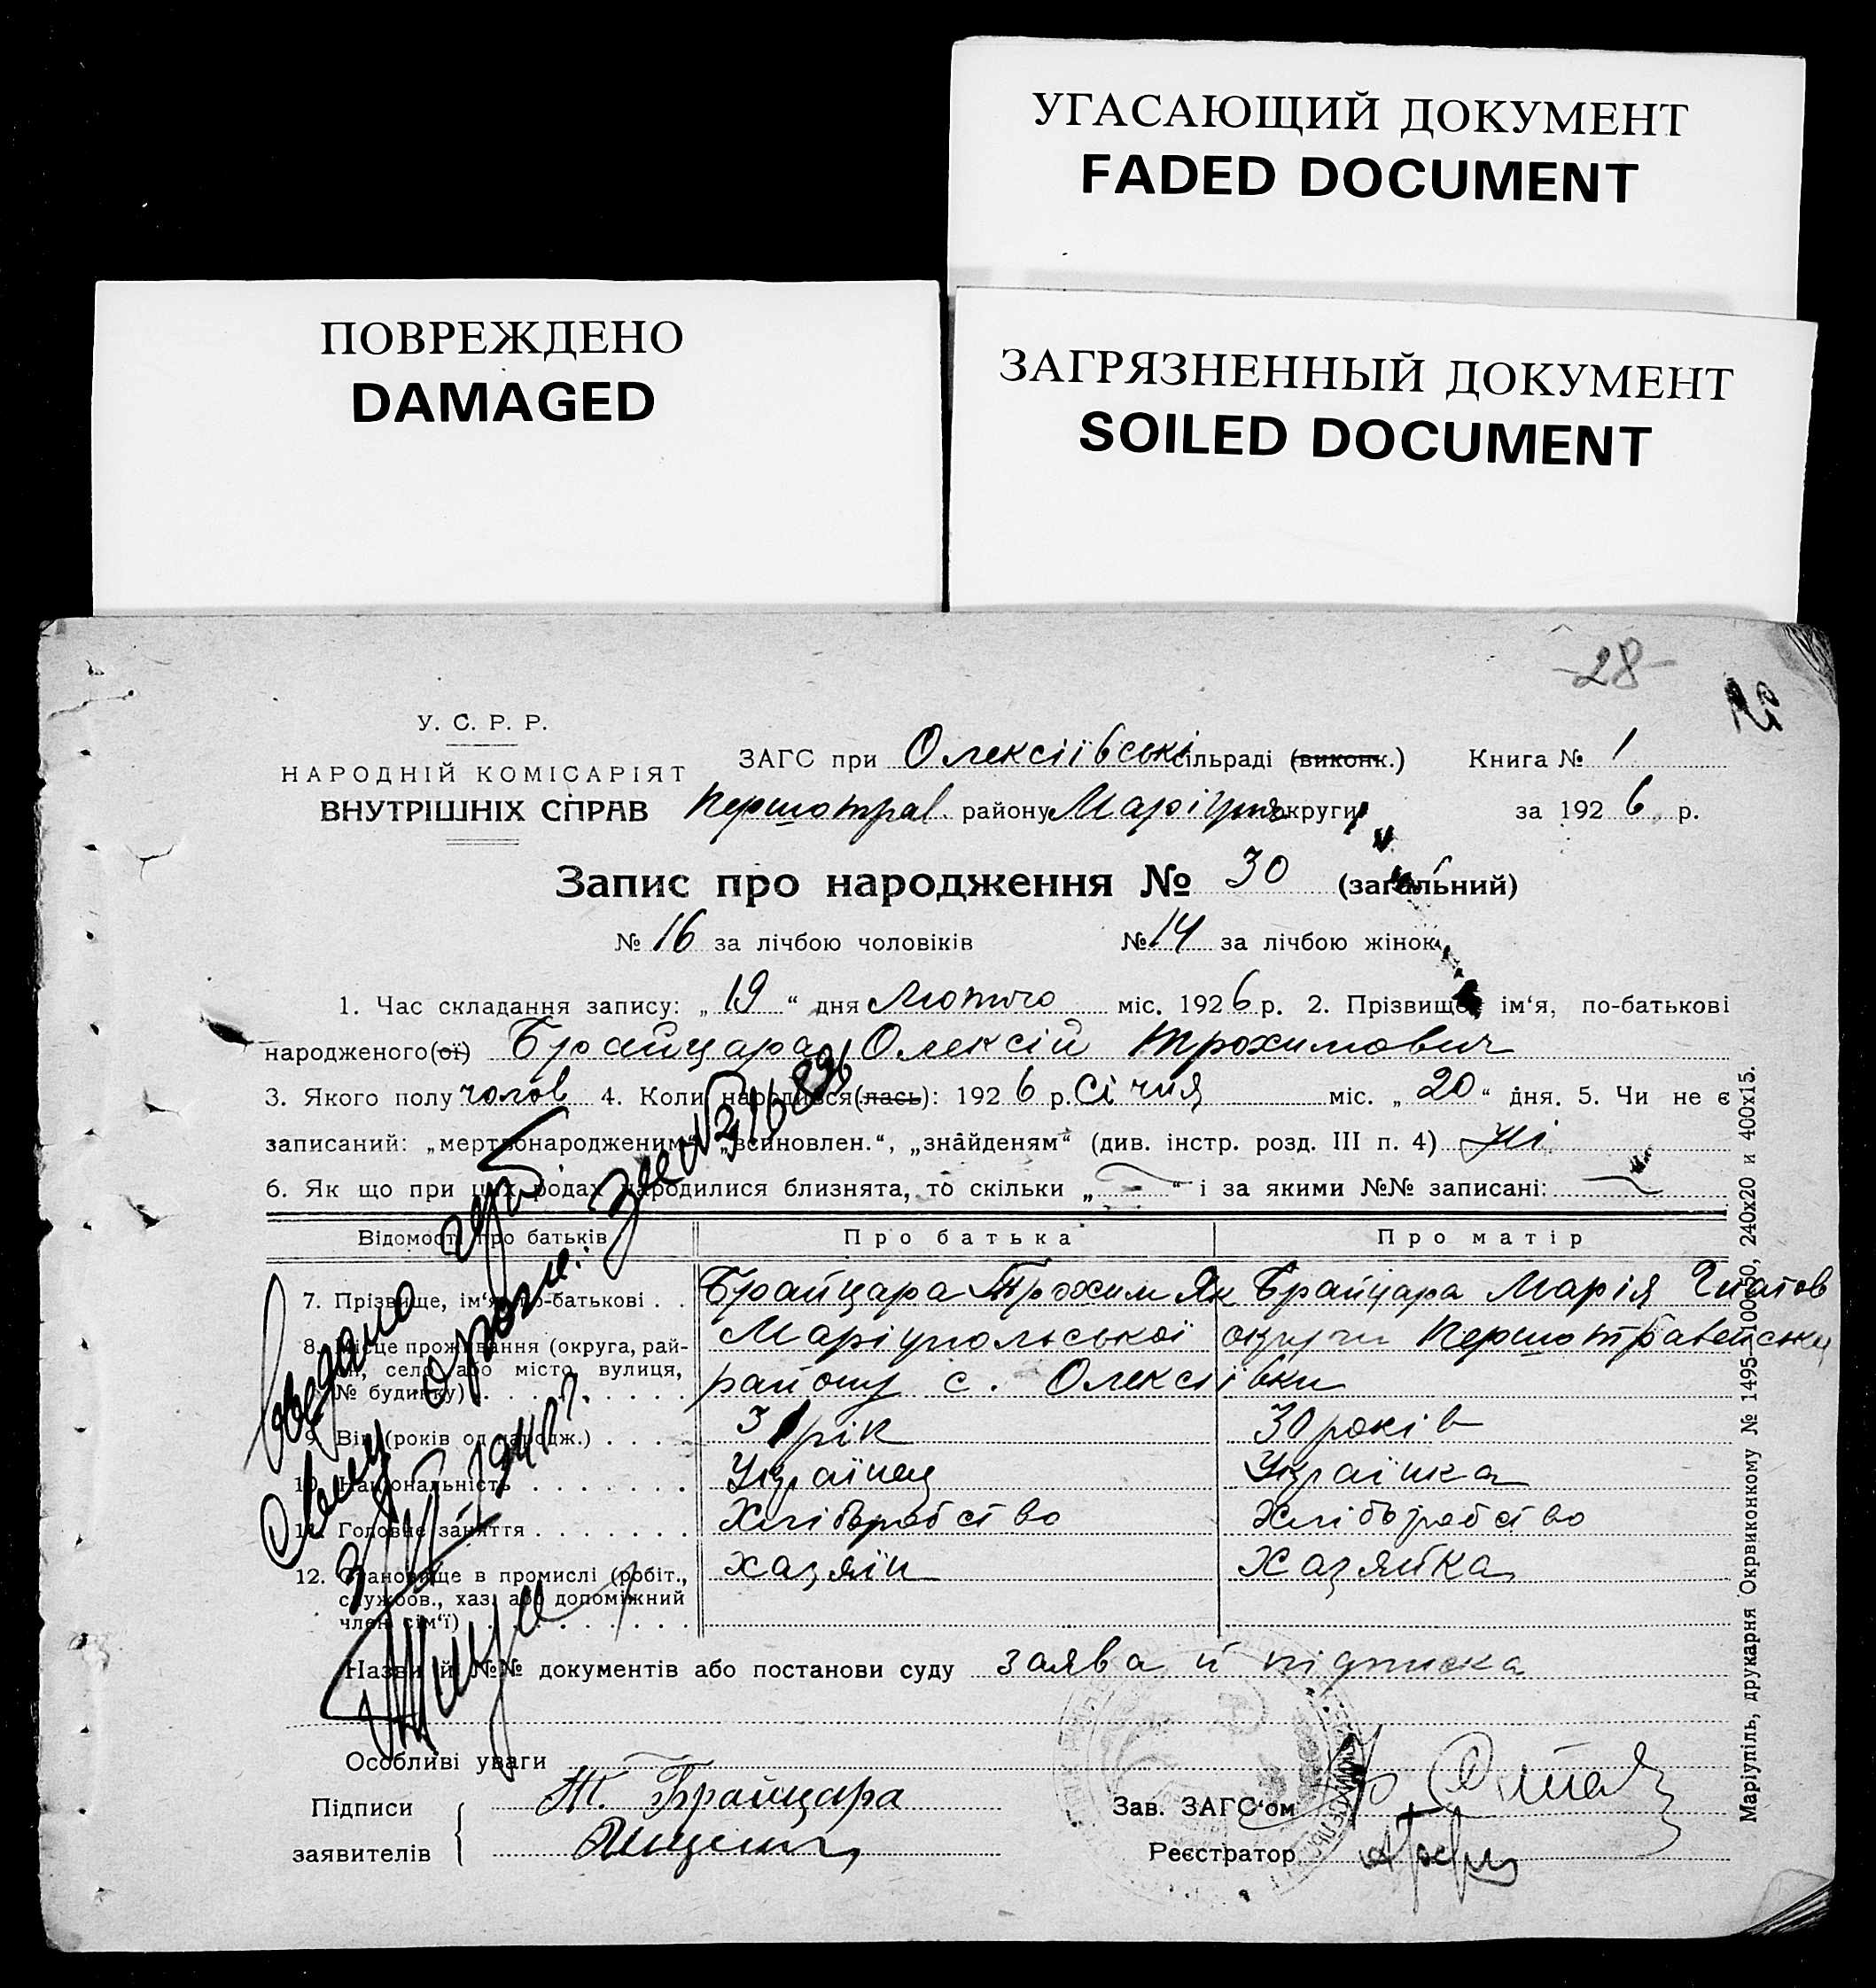 УГАСАЮЩИЙ ДОКУМЕНТ
FADED DOCUMENT
ПОВРЕЖДЕНО
DAMAGED
ЗАГРЯЗНЕННЫЙ ДОКУМЕНТ
SOILED DOCUMENT
-28-
У. С. Р. Р.
НАРОДНІЙ КОМІСАРІЯТ
ВНУТРІШНІХ СПРАВ
ЗАГС при Олексіївські сільраді (виконк.) Книга № 1
Першотрав. району Маріуп округи за 1926 р.
Запис про народження № 30 (загальний)
№ 16 за лічбою чоловіків № 14 за лічбою жінок
1. Час складання запису: „19“ дня Лютого міс. 1926 р. 2. Прізвище, ім‘я, по-батькові
народженого(ої) Брайцара Олексій Трохимович
3. Якого полу чолов 4. Коли народився(лась): 1926 р. Січня міс. „20“ дня. 5. Чи не є
записаний: „мертвонародженим“, „всиновлен.“, „знайденям“ (див. інстр. розд. III п. 4) Ні
6. Як що при цих родах народилися близнята, то скільки „—“ і за якими №№ записані: —
Відомості про батьків Про батька Про матір
7. Прізвище, ім‘я, по-батькові . . Брайцара Трохим Як Брайцара Марія Гнатов
8. Місце проживання (округа, рай-
он, село або місто, вулиця,
№ будинку) Маріупольської округи Першотравенськ
району с. Олексіївки
9. Вік (років од народж.) . . . . 31 рік 30 років
10. Національність . . . . . . . Українец Українка
11. Головне заняття . . . . . . . Хліборобство Хліборобство
12. Становище в промислі (робіт.,
службов., хаз. або допоміжний
член сім‘ї) . . . . . . . . . . хазяїн Хазяйка
Назви й №№ документів або постанови суду заява й підписка
Особливі уваги
Підписи
заявителів
Т. Брайцара
Зав. ЗАГС‘ом
Реєстратор
Маріупіль, друкарня Окрвиконкому № 1495—100×50, 240x20 и 400x15.